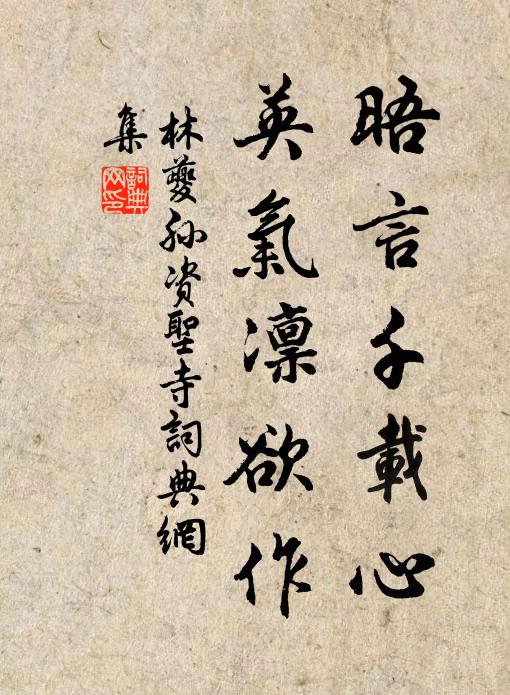 晤言千載心
英氣凛欲作
林夔孙资聖寺詞典網
集
詞典
网印